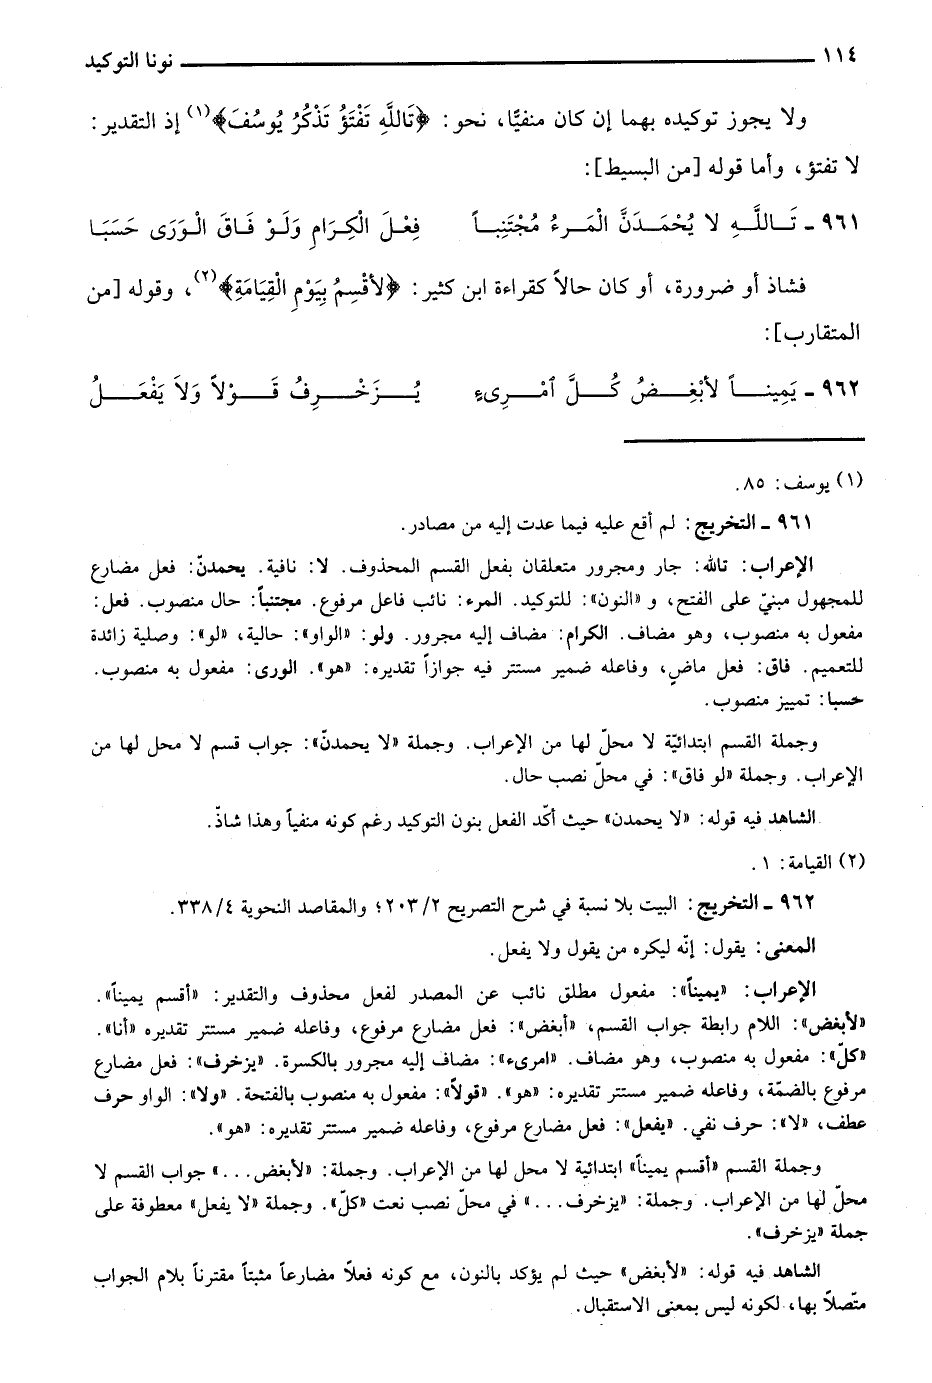 ١١٤ نونا التوكيد
ولا يجوز توكيده بهما إن كان منفيًّا، نحو: ﴿تَاللَّهِ تَفْتَؤُ تَذْكُرُ يُوسُفَ﴾(١) إذ التقدير:
لا تفتؤ، وأما قوله [من البسيط]:
٩٦١ ـ تَـاللَّـهِ لا يُحْمَـدَنَّ الْمَـرءُ مُجْتَنِبـاً فِعْـلَ الْكِـرَامِ وَلَـوْ فَـاقَ الْـوَرَى حَسَبَـا
فشاذ أو ضرورة، أو كان حالاً كقراءة ابن كثير: ﴿لأقْسِمُ بِيَوْمِ الْقِيَامَةِ﴾(٢)، وقوله [من
المتقارب]:
٩٦٢ ـ يَمِينـاً لأبْغِـضُ كُـلَّ ٱمْـرِىءٍ يُـزَخْـرِفُ قَـوْلاً وَلاَ يَفْعَـلُ
(١) يوسف: ٨٥.
٩٦١ ـ التخريج: لم أقع عليه فيما عدت إليه من مصادر.
الإعراب: تالله: جار ومجرور متعلقان بفعل القسم المحذوف. لا: نافية. يحمدنّ: فعل مضارع
للمجهول مبنيّ على الفتح، و «النون»: للتوكيد. المرء: نائب فاعل مرفوع. مجتنباً: حال منصوب. فعل:
مفعول به منصوب، وهو مضاف. الكرام: مضاف إليه مجرور. ولو: «الواو»: حالية، «لو»: وصلية زائدة
للتعميم. فاق: فعل ماضٍ، وفاعله ضمير مستتر فيه جوازاً تقديره: «هو». الورى: مفعول به منصوب.
حسبا: تمييز منصوب.
وجملة القسم ابتدائيّة لا محلّ لها من الإعراب. وجملة «لا يحمدنّ»: جواب قسم لا محل لها من
الإعراب. وجملة «لو فاق»: في محلّ نصب حال.
الشاهد فيه قوله: «لا يحمدن» حيث أكّد الفعل بنون التوكيد رغم كونه منفياً وهذا شاذّ.
(٢) القيامة: ١.
٩٦٢ ـ التخريج: البيت بلا نسبة في شرح التصريح ٢٠٣/٢؛ والمقاصد النحوية ٣٣٨/٤.
المعنى: يقول: إنّه ليكره من يقول ولا يفعل.
الإعراب: «يميناً»: مفعول مطلق نائب عن المصدر لفعل محذوف والتقدير: «أقسم يميناً».
«لأبغض»: اللام رابطة جواب القسم، «أبغض»: فعل مضارع مرفوع، وفاعله ضمير مستتر تقديره «أنا».
«كلّ»: مفعول به منصوب، وهو مضاف. «امرىء»: مضاف إليه مجرور بالكسرة. «يزخرف»: فعل مضارع
مرفوع بالضمّة، وفاعله ضمير مستتر تقديره: «هو». «قولاً»: مفعول به منصوب بالفتحة. «ولا»: الواو حرف
عطف، «لا»: حرف نفي. «يفعل»: فعل مضارع مرفوع، وفاعله ضمير مستتر تقديره: «هو».
وجملة القسم «أقسم يميناً» ابتدائية لا محل لها من الإعراب. وجملة: «لأبغض...» جواب القسم لا
محلّ لها من الإعراب. وجملة: «يزخرف...» في محلّ نصب نعت «كلّ». وجملة «لا يفعل» معطوفة على
جملة «يزخرف».
الشاهد فيه قوله: «لأبغض» حيث لم يؤكد بالنون، مع كونه فعلاً مضارعاً مثبتاً مقترناً بلام الجواب
متّصلاً بها، لكونه ليس بمعنى الاستقبال.